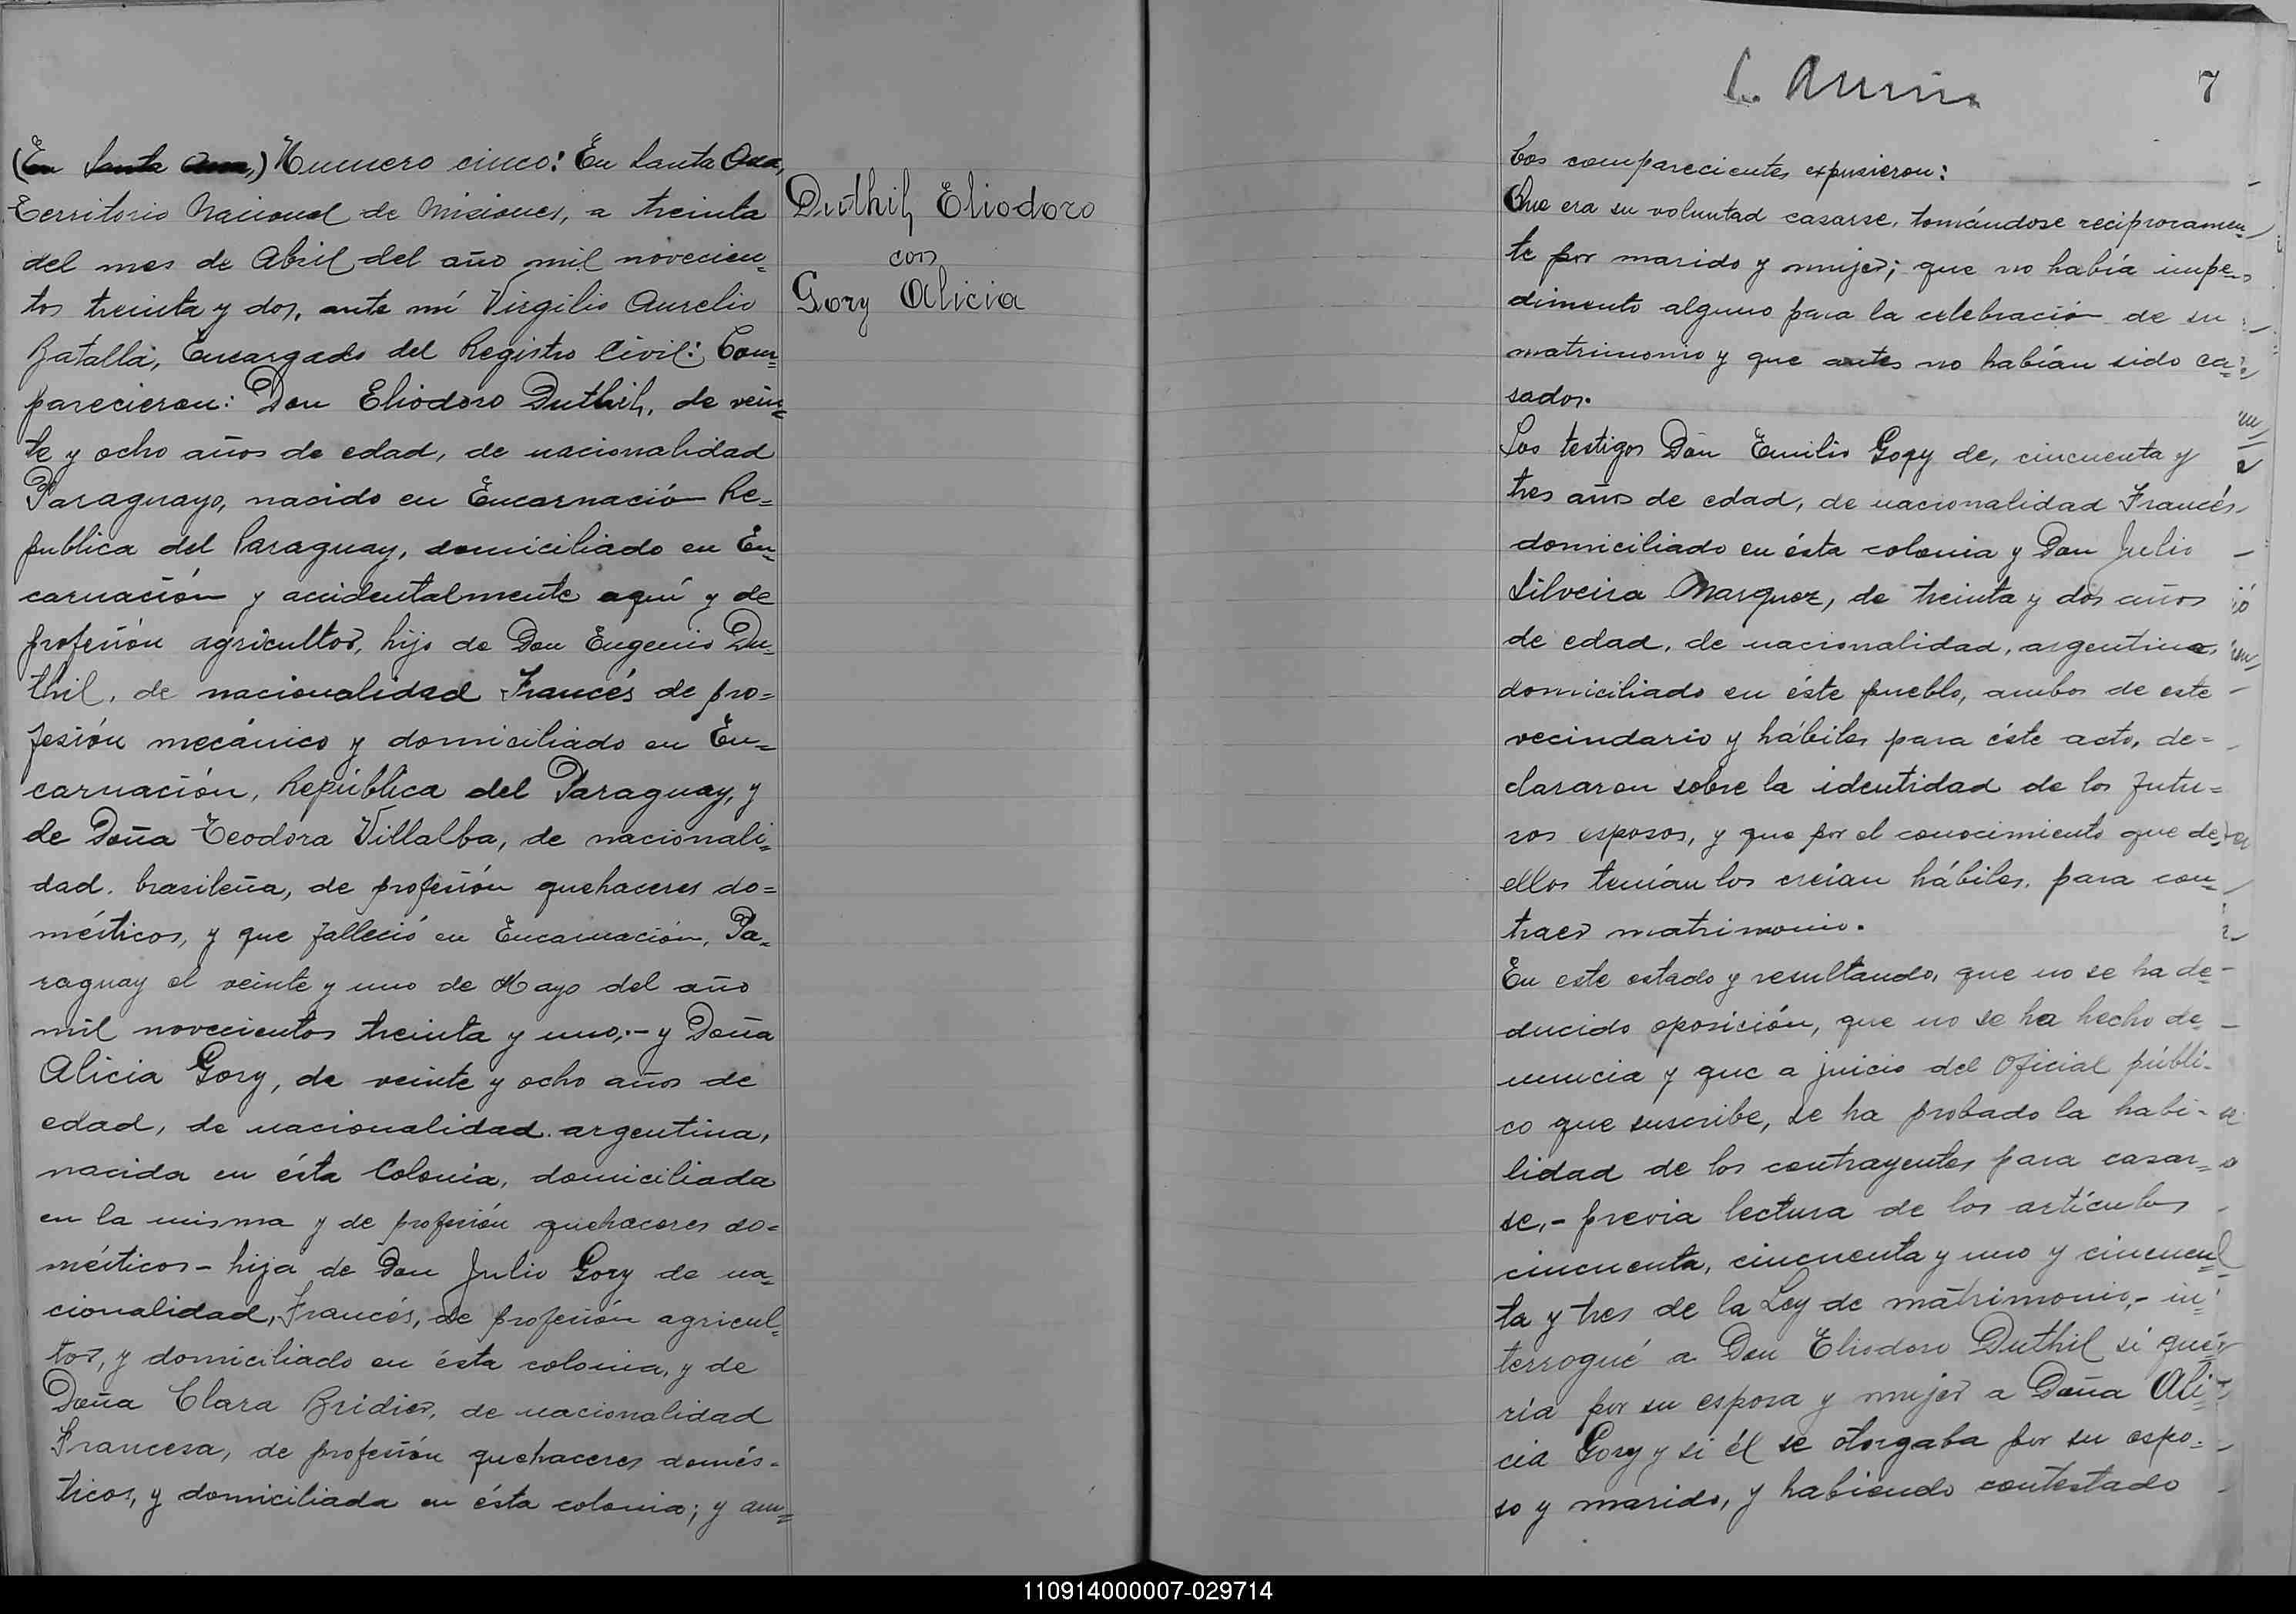 (En Santa Ana,) Numero cinco: En Santa Ana,
Territorio Nacional de Misiones, a treinta
del mes de Abril del año mil novecien=
tos treinta y dos, ante mí Virgilio Aurelio
Batalla, Encargado del Registro Civil: Com=
parecieron: Don Eliodoro Duthil, de vein=
te y ocho años de edad, de nacionalidad
Paraguayo, nacido en Encarnación Re=
publica del Paraguay, domiciliado en En=
carnación y accidentalmente aquí y de
profesión agricultor, hijo de Don Eugenio Du=
thil, de nacionalidad Francés de pro=
fesión mecánico y domiciliado en En=
carnación, República del Paraguay, y
de Doña Teodora Villalba, de nacionali=
dad. brasileña, de profesión quehaceres do=
mésticos, y que falleció en Encarnación, Pa=
raguay el veinte y uno de Mayo del año
mil novecientos treinta y uno,.- y Doña
Alicia Gory, de veinte y ocho años de
edad, de nacionalidad argentina,
nacida en ésta Colonia, domiciliada
en la misma y de profesión quehaceres do=
mésticos - hija de Don Julio Gory de na=
cionalidad, Francés, de profesión agricul=
tor, y domiciliado en ésta colonia, y de
Doña Clara Bridier, de nacionalidad
Francesa, de profesión quehaceres domés-
ticos, y domiciliada en ésta colonia; y am=
Duthil, Eliodoro
con
Gory Alicia
7
bos comparecientes expusieron:
Que era su voluntad casarse, tomándose reciprocamen=
te por marido y mujer; que no había impe=
dimento alguno para la celebración de su
matrimonio y que antes no habían sido ca=
sados.
Los testigos Don Emilio Gory de, cincuenta y
tres años de edad, de nacionalidad Francés,
domiciliado en ésta colonia y Don Julio
Silveira Marquez, de treinta y dos años
de edad, de nacionalidad, argentino,
domiciliado en éste pueblo, ambos de este
vecindario y hábiles para éste acto, de=
clararon sobre la identidad de los futu=
ros esposos, y que por el conocimiento que de
ellos tenían los creían hábiles, para con=
traer matrimonio.
En este estado y resultando, que no se ha de=
ducido oposición, que no se ha hecho de=
nuncia y que a juicio del Oficial públi-
co que suscribe, se ha probado la habi-
lidad de los contrayentes para casar=
se,- previa lectura de los artículos
cincuenta, cincuenta y uno y cincuen=
ta y tres de la Ley de matrimonio,- in=
terrogué a Don Eliodoro Duthil si que=
ría por su esposa y mujer a Doña Ali=
cia Gory y si él se otorgaba por su espo=
so y marido, y habiendo contestado
110914000007-029714